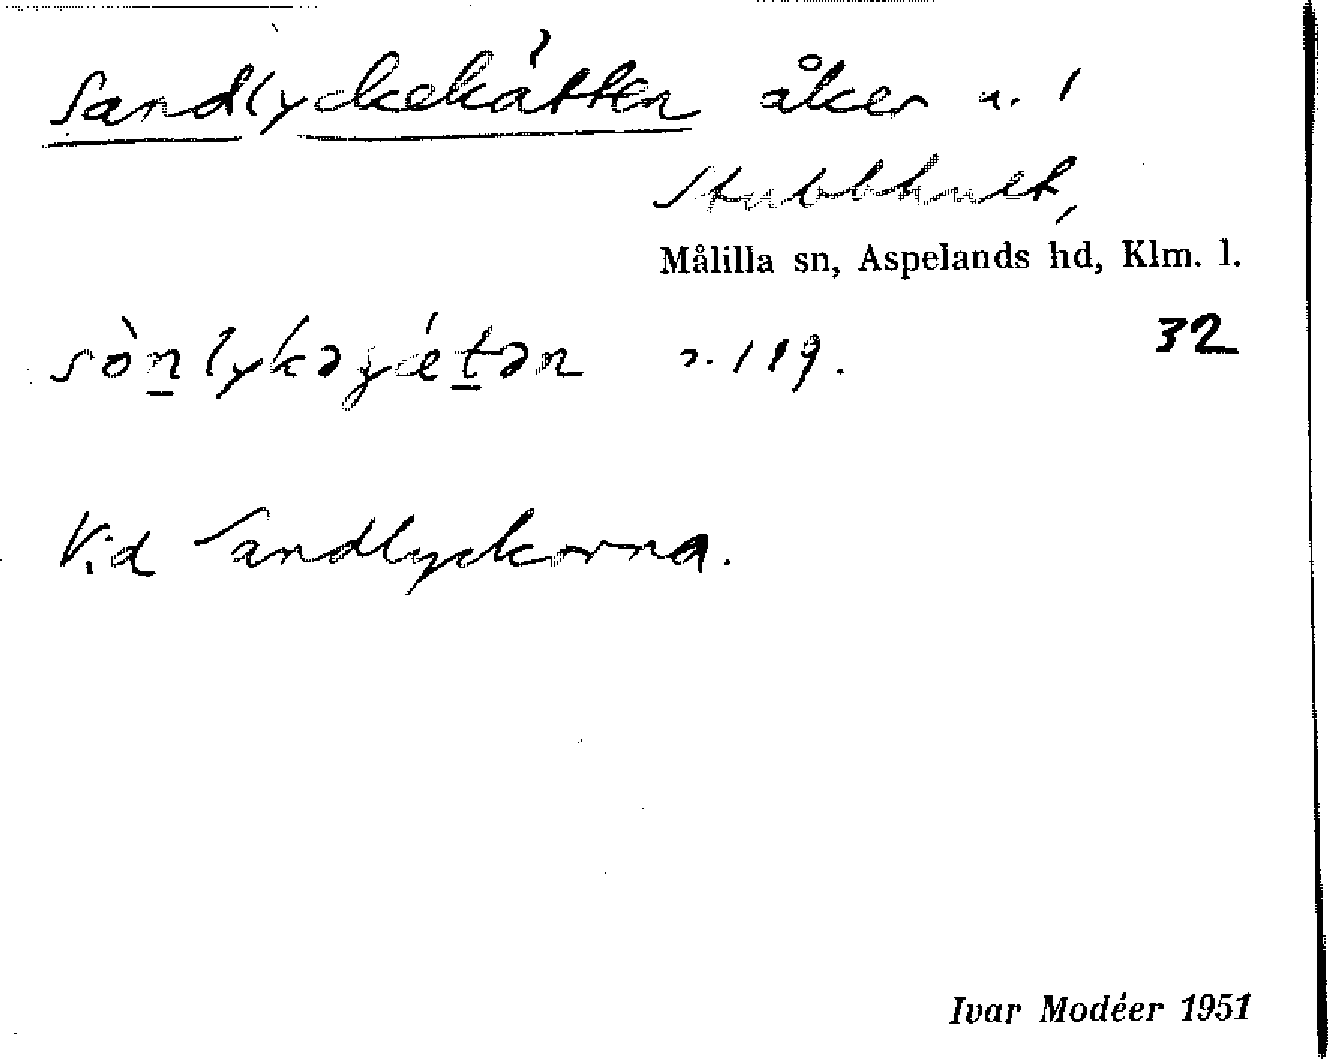 Sandlyckekätten åker n. 1
Stubbhult,
Målilla sn, Aspelands hd, Klm. l.
32
sònlykəgǽtən n. 119.
Vid Sandlyckorna.
Ivar Modéer 1951